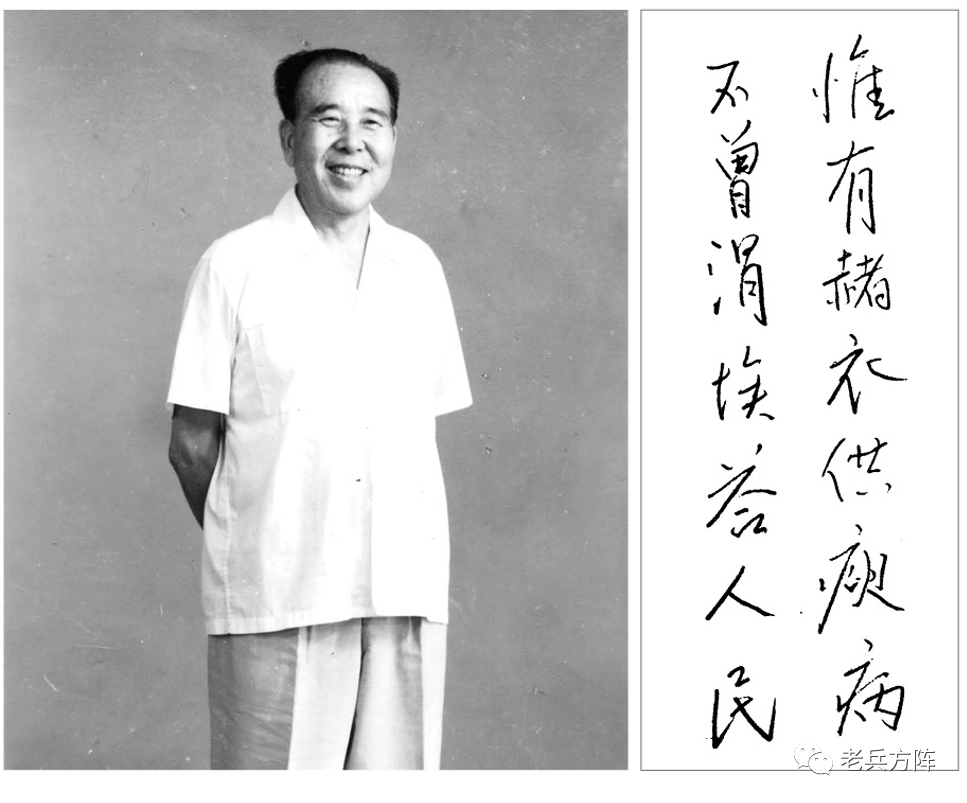 惟有赭衣供瘐病
不曾涓埃答人民
老兵方阵